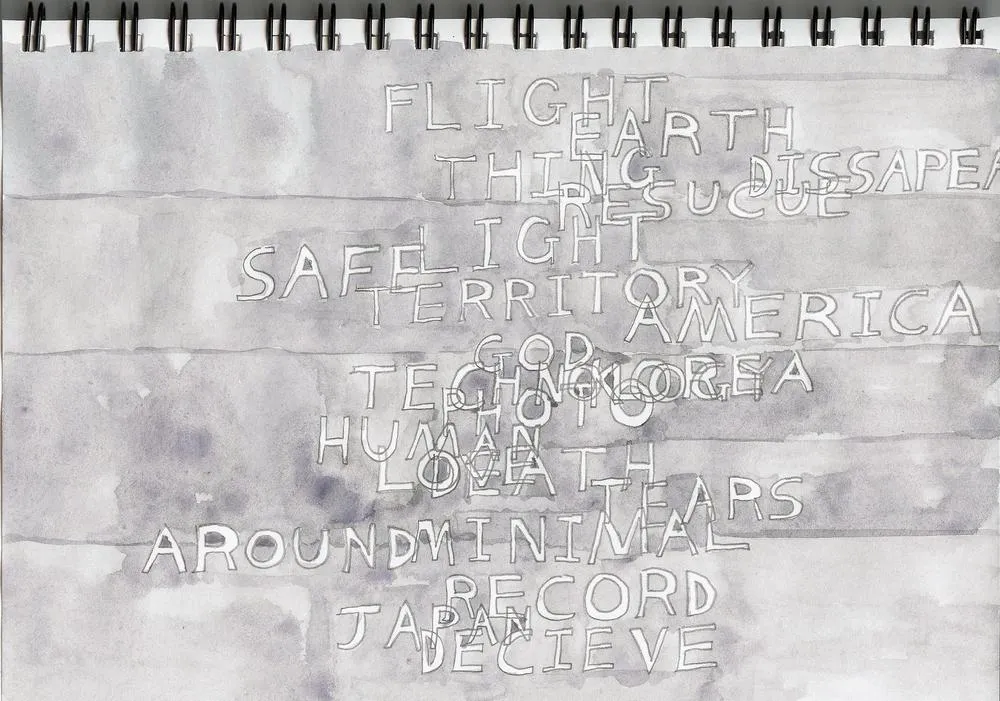 FLIGHT
EARTH
THING DISSAPEA
RESUCUE
LIGHT
SAFE
TERRITORY
AMERICA
GOD
TECHNOLOGY KOREA
PHOTO
HUMAN
LOVE DEATH
TEARS
AROUND MINIMAL
RECORD
JAPAN
DECIEVE